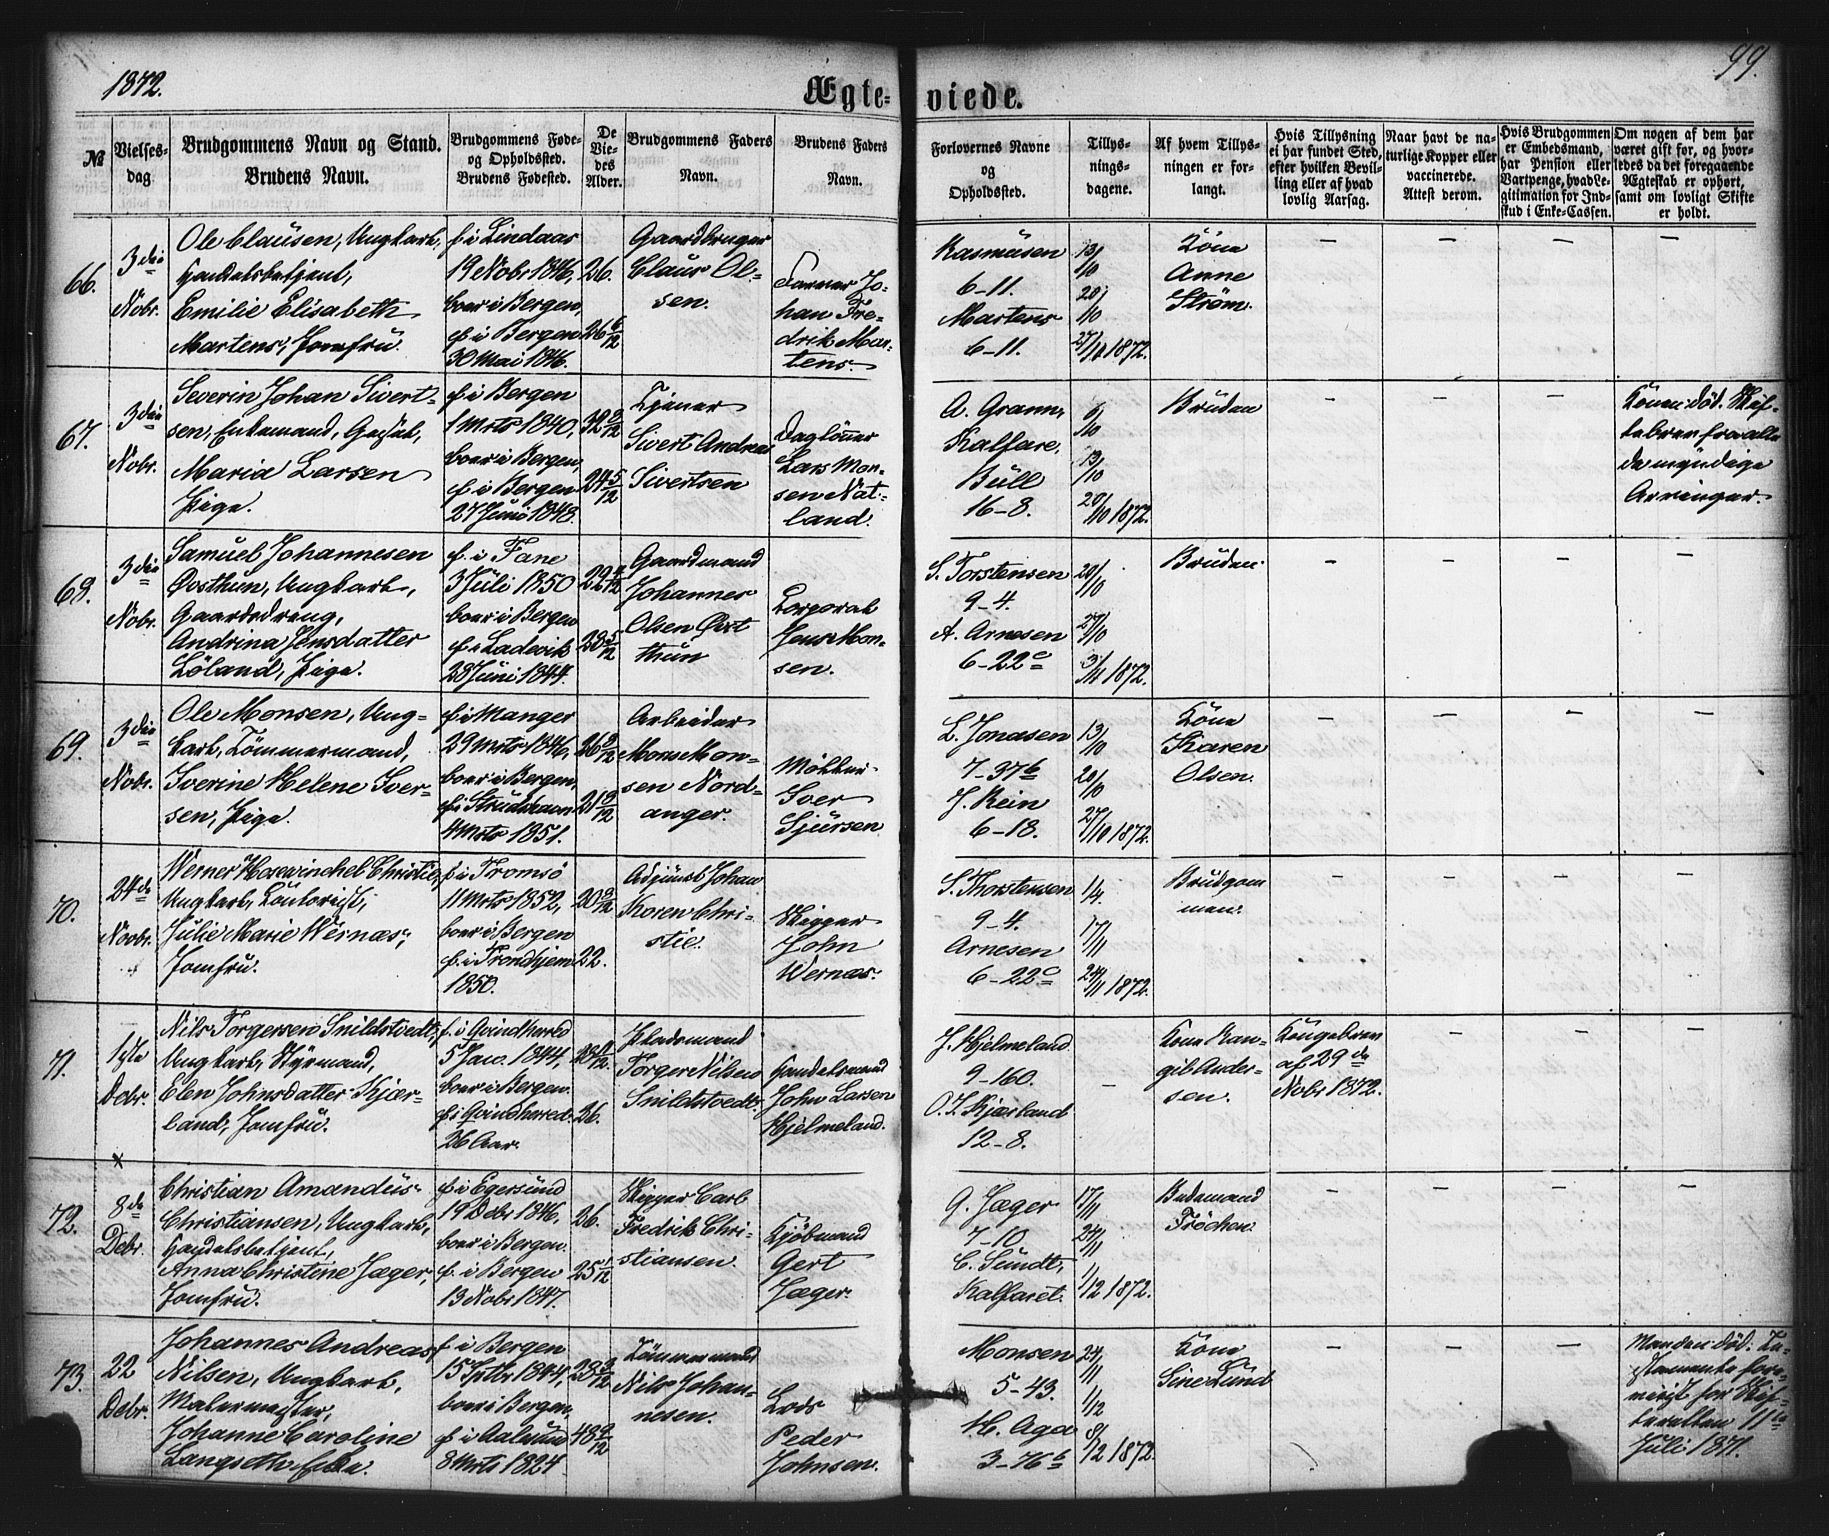 1872.
99.
Ægteviede.
№
Vielsesdag.
Brudgommens Navn og Stand.
Brudens Navn.
Brudgommens Føde-
og Opholdssted.
Brudens Fødested.
De
Vie-
des
Alder.
Brudgommens Faders
Navn.
Brudens Faders
Navn.
Forlovernes Navne
og
Opholdssted.
Tillys-
nings-
dagene.
Af hvem Tillys-
ningen er for-
langt.
Hvis Tillysning
ei har fundet Sted,
efter hvilken Bevil-
ling eller af hvad
lovlig Aarsag.
Naar havt de na-
turlige Kopper eller
vaccinerede.
Attest derom.
Hvis Brudgommen
er Embedsmand,
har Pension eller
Vartpenge, hvad Le-
gitimation for Ind-
skud i Enke-Cassen.
Om nogen af dem har
været gift før, og hvor-
ledes da det foregaaende
Ægteskab er ophørt,
samt om lovligt Skifte
er holdt.
66.
3die
Nobr.
Ole Clausen, Ungkarl,
Handelsbetjent,
Emilie Elisabeth
Martens, Jomfru.
f. i Lindaas
19 Nobr 1846,
boer i Bergen,
f. i Bergen
30 Mai 1846.
26.
26 6/12
Gaardbruger
Claus Ol-
sen.
Farver Jo-
han Fre-
drik Mar-
tens.
Rasmusen
6-11.
Martens
6-11.
13/10
20/10
27/10 1872.
Kone
Anne
Strøm.
67.
3die
Nobr.
Severin Johan Sivert-
sen, Enkemand, Gesel,
Maria Larsen
Pige.
f. i Bergen
1 Mrts 1840,
boer i Bergen,
f. i Bergen
27 Juni 1848.
32 8/12
24 5/12
Tjener
Sivert Andreas
Sivertsen
Daglønner
Lars Mon-
sen Nat-
land.
A. Grann,
Kalfare,
Büll
16-8.
6/10
13/10
20/10 1872.
Bruden
Konen død. Skif-
tebrev fra alle
de myndige
Arvinger.
68.
3die
Nobr.
Samuel Johannesen
Øvsthun, Ungkarl,
Gaardsdreng,
Andrina Jensdatter
Løland, Pige.
f. i Fane
3 Juli 1850
boer i Bergen
f. i Ladevik
28 Juni 1844.
22 4/12
28 5/12
Gaardmand
Johannes
Olsen Øvst
thun
Corporal
Jens Mon-
sen.
S. Torstensen
9-4.
A. Arnesen
6-22c
20/10
27/10
3/11 1872.
Bruden
69.
3die
Nobr.
Ole Monsen, Ung-
karl, Tømmermand,
Iverine Helene Iver-
sen, Pige.
f. i Manger
29 Mrts 1846,
boer i Bergen,
f. i Strudshavn
4 Mrts 1851.
26 8/12
21 8/12
Arbeider
Mons Mon-
sen Nord-
anger.
Møller
Iver
Sjursen
L. Jonasen
7-37b
J. Rein
6-18.
13/10
20/10
27/10 1872.
Kone
Karen
Olsen.
70.
24de
Novbr.
Werner Hosewinckel Christie,
Ungkarl, Contorist,
Julie Marie Wernæs,
Jomfru.
f. i Tromsø
11 Mrts 1852,
boer i Bergen
f. i Trondhjem
1850.
20 8/12
22.
Adjunct Johan
Koren Chri-
stie.
Skipper
John
Wernæs.
S. Thorstensen
9-4.
Arnesen
6-22c
1/4.
17/11
24/11 1872.
Brudgom
men.
71.
1ste
Debr.
Nils Torgersen Snildstvedt,
Ungkarl, Styrmand,
Elen Johnsdatter Kjær-
land, Jomfru.
f. i Qvindherred
5 Jan. 1844,
boer i Bergen.
f. i Qvindherred.
26 Aar.
26.
Pladsmand
Torger Nilsen
Snildstvedt.
Handelsmand
John Larsen
Hjelmeland.
J. Hjelmeland
9-160.
O. T. Kjærland
12-8.
Kone Ran-
gil Ander-
sen.
Kongebrev
af 29de
Nobr 1872.
72.
8de
Debr.
Christian Amandus
Christiansen, Ungkarl,
Handelsbetjent,
Anna Christine Jæger,
Jomfru.
f. i Egersund
19 Debr 1846,
boer i Bergen.
f. i Bergen
13 Nobr 1847.
26.
25 1/12
Skipper Carl
Fredrik Chri-
stiansen.
Kjøbmand
Gert
Jæger.
G. Jæger
7-10
C. Sundt,
Kalfaret.
17/11
24/11
1/12 1872.
Budemand
Trøchen.
73.
22
Debr.
Johannes Andreas
Nilsen, Ungkarl,
Malermester,
Johanne Caroline
Langseth, Enke.
f. i Bergen
15 Sptbr 1844,
boer i Bergen,
f. i Aalesund
8 Mrts 1824.
28 3/12
48 9/12
Tømmermand
Nils Johan-
nesen.
Lods
Peder
Johnsen.
Monsen
5-43.
H. Aga
3-76b
24/11
1/12
8/12 1872.
Kone
Sine Lund
Manden død. Te-
stamente fore-
vist for Skif-
teretten 11te
Juli 1871.